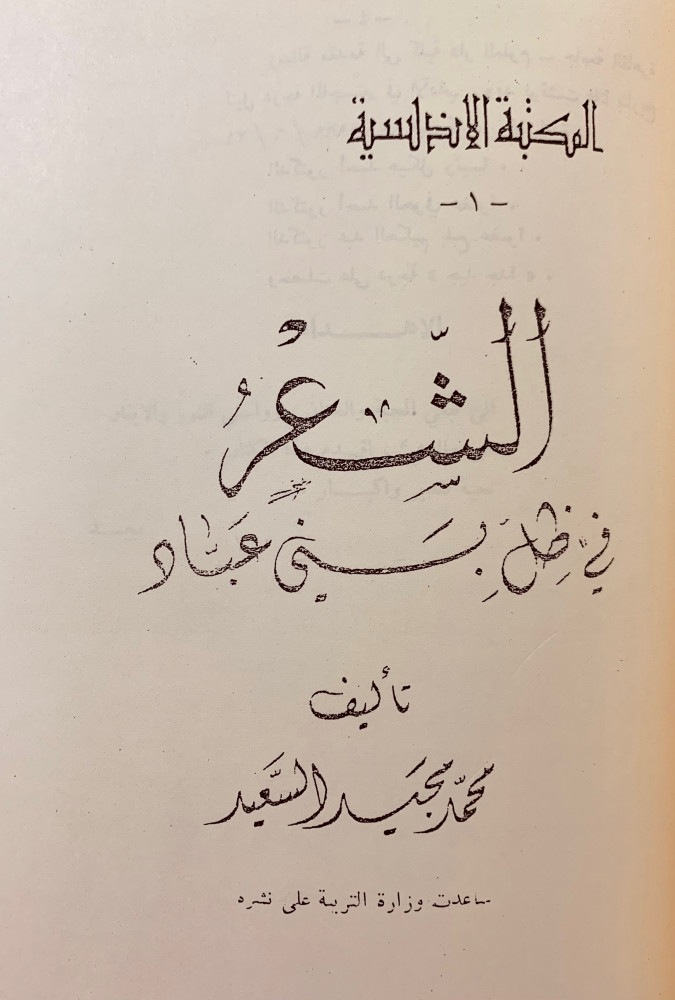 المكتبة الاندلسية
- ١ -
الشّعْرُ
في ظِلِّ بَني عَبّاد
تأليف
محمّد مجيد السَّعيد
ساعدت وزارة التربية على نشره